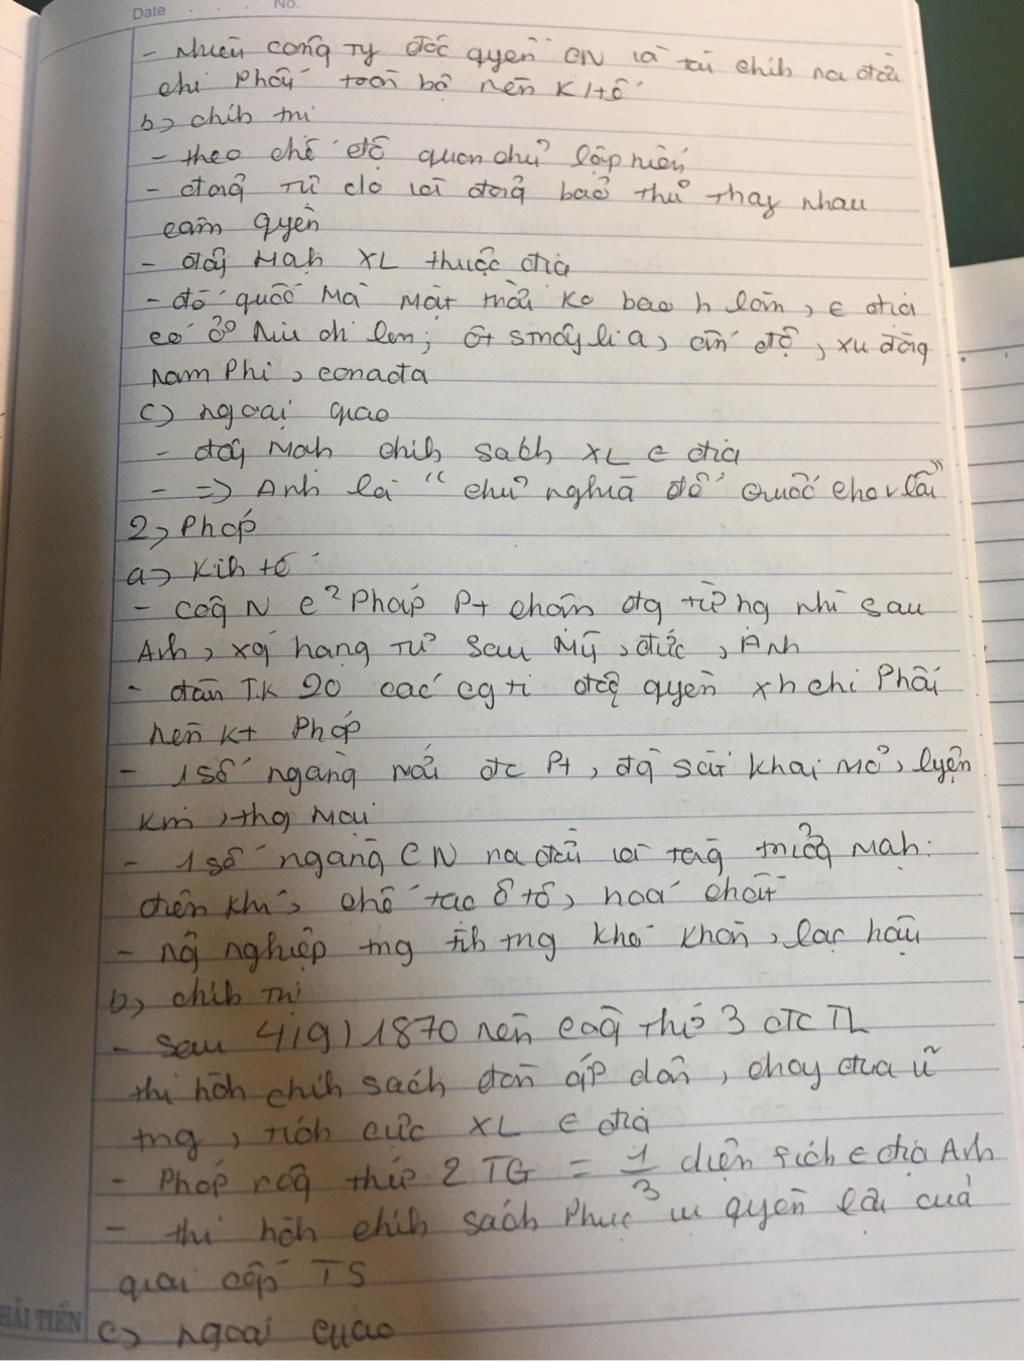 Date . . . No.
- nhiều công ty độc quyền CN và tài chíh ra đời
chi phối toàn bộ nền K/tế
b, chíh trị
- theo chế độ quân chủ lập hiến
- đảng tự do và đảng bảo thủ thay nhau
cầm quyền
- đẩy mạh XL thuộc địa
- đế quốc mà mặt trời ko bao h lặn, ∈ địa
có ở Niu di lơn; Ôt smây li a, ấn độ, xu đăng
nam phi, canađa
c) ngoại giao
- đẩy mạh chíh sách XL ∈ địa
- => Anh là "chủ nghĩa đế quốc cho vay lãi"
2, Pháp
a, Kih tế
- côg N c² Pháp Pt chậm đg từ hg nhì sau
Anh, xg hạng tư sau Mỹ, đức, Anh
- đầu T.K 20 các cg ti độc quyền xh chi phối
nền kt Pháp
- 1 số ngàng mới đc Pt, đg sắt khai mỏ, lyện
kim, thg mại
- 1 số ngàng CN ra đời và tăg trưởg mạh:
điện khí, chế tạo ô tô, hoá chất
- nô nghiệp trg tìh trg khó khăn, lạc hậu
b, chíh trị
- sau 4/9/1870 nền cộg thứ 3 đc TL
thi hàh chíh sách đàn áp dân, chạy đua ũ
trg, tích cực XL ∈ địa
- Pháp rộg thứ 2 TG = 1/3 diện tích ∈ địa Anh
- thi hàh chíh sách phục vụ quyền lợi của
giai cấp TS
HẢI TIẾN
c) ngoại giao